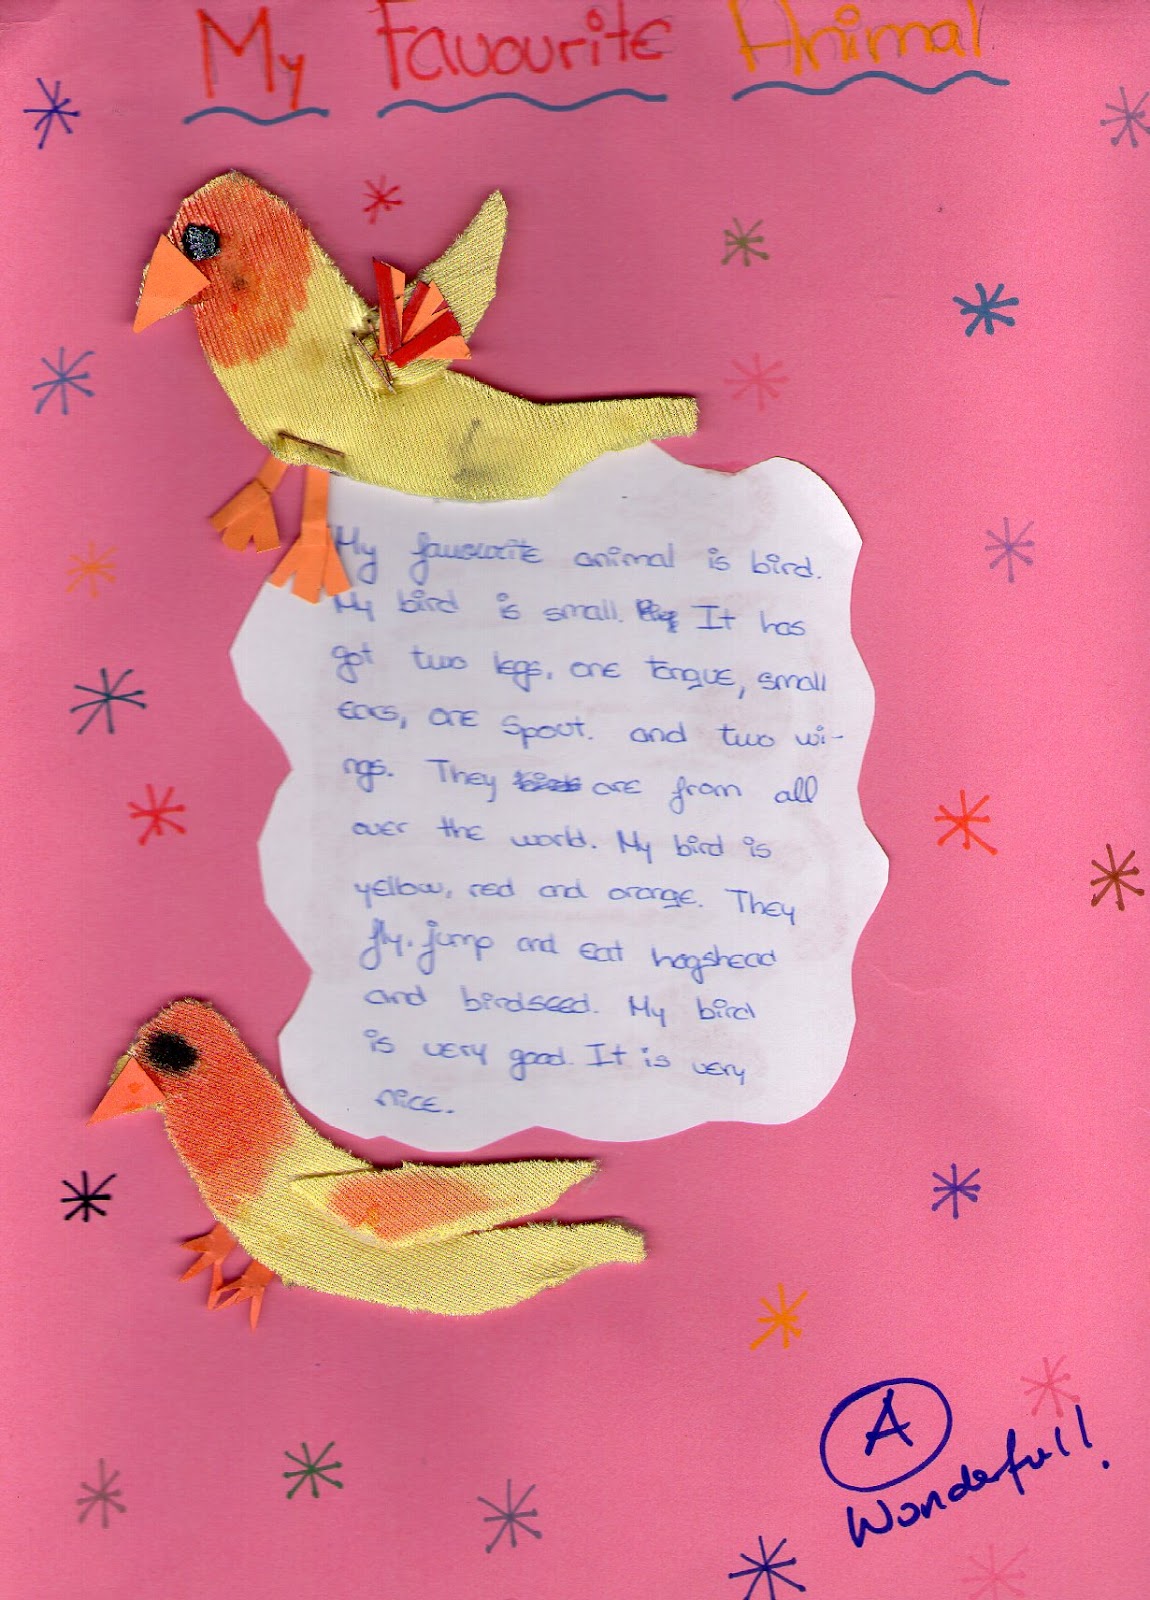 My Favourite Animal
My favourite animal is bird.
My bird is small. It has
got two legs, one tongue, small
ears, one spout. and two wi-
ngs. They birds are from all
over the world. My bird is
yellow, red and orange. They
fly, jump and eat hogshead
and birdseed. My bird
is very good. It is very
nice.
A
Wonderfull!